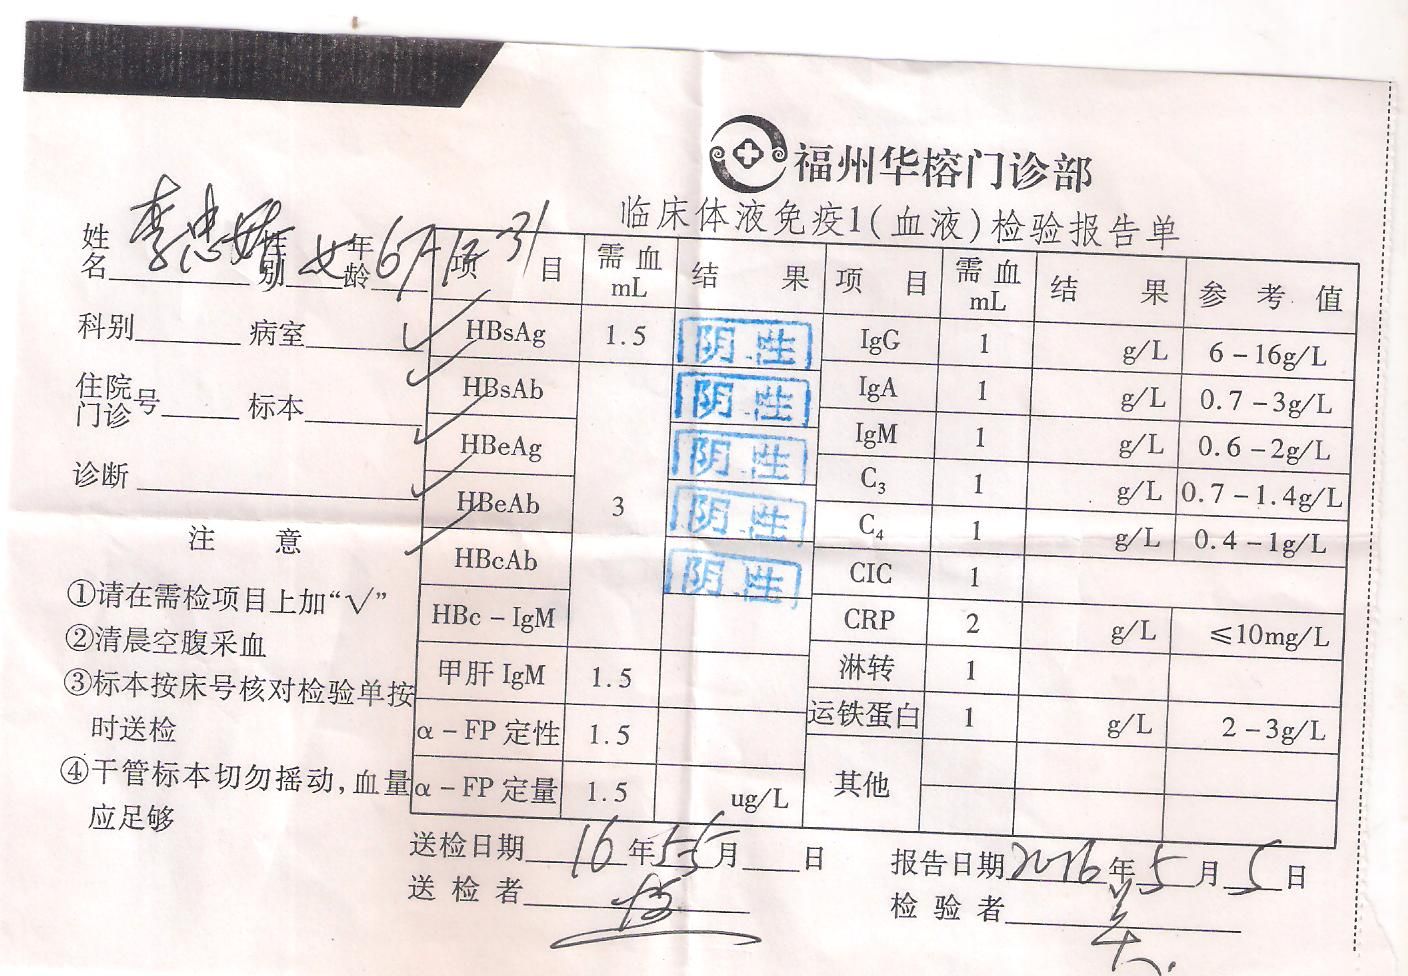 福州华榕门诊部
临床体液免疫1(血液)检验报告单
姓名 李忠 性别 女 年龄 67
科别 病室
住院 门诊 号 标本
诊断
注 意
①请在需检项目上加“√”
②清晨空腹采血
③标本按床号核对检验单按
时送检
④干管标本切勿摇动,血量
应足够
项 目 需血 mL 结 果 项 目 需血 mL 结 果 参 考 值
√ HBsAg 1.5 阴性 IgG 1 g/L 6-16g/L
√ HBsAb 阴性 IgA 1 g/L 0.7-3g/L
√ HBeAg 阴性 IgM 1 g/L 0.6-2g/L
√ HBeAb 3 阴性 C3 1 g/L 0.7-1.4g/L
√ HBcAb 阴性 C4 1 g/L 0.4-1g/L
HBc-IgM CIC 1
甲肝 IgM 1.5 CRP 2 g/L ≤10mg/L
α-FP 定性 1.5 淋转 1
α-FP 定量 1.5 ug/L 运铁蛋白 1 g/L 2-3g/L
其他
送检日期 16 年 5 5 月 日 报告日期 2016 年 5 月 5 日
送 检 者 检 验 者